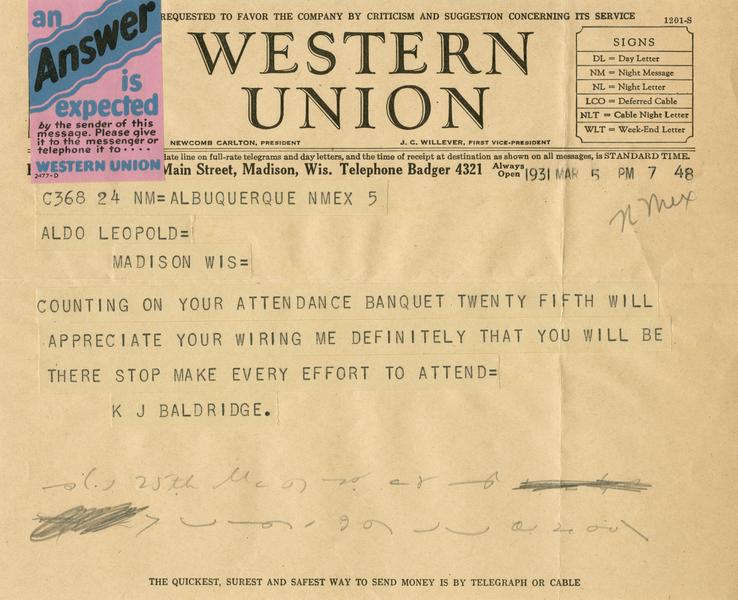 an
Answer
is
expected
by the sender of this
message. Please give
it to the messenger or
telephone it to ....
WESTERN UNION
2477-D
REQUESTED TO FAVOR THE COMPANY BY CRITICISM AND SUGGESTION CONCERNING ITS SERVICE
1201-S
WESTERN
UNION
NEWCOMB CARLTON, PRESIDENT
J. C. WILLEVER, FIRST VICE-PRESIDENT
SIGNS
DL = Day Letter
NM = Night Message
NL = Night Letter
LCO = Deferred Cable
NLT = Cable Night Letter
WLT = Week-End Letter
date line on full-rate telegrams and day letters, and the time of receipt at destination as shown on all messages, is STANDARD TIME.
Main Street, Madison, Wis. Telephone Badger 4321 Always Open
1931 MAR 5 PM 7 48
C368 24 NM=ALBUQUERQUE NMEX 5
N Mex
ALDO LEOPOLD=
MADISON WIS=
COUNTING ON YOUR ATTENDANCE BANQUET TWENTY FIFTH WILL
APPRECIATE YOUR WIRING ME DEFINITELY THAT YOU WILL BE
THERE STOP MAKE EVERY EFFORT TO ATTEND=
K J BALDRIDGE.
25th
THE QUICKEST, SUREST AND SAFEST WAY TO SEND MONEY IS BY TELEGRAPH OR CABLE